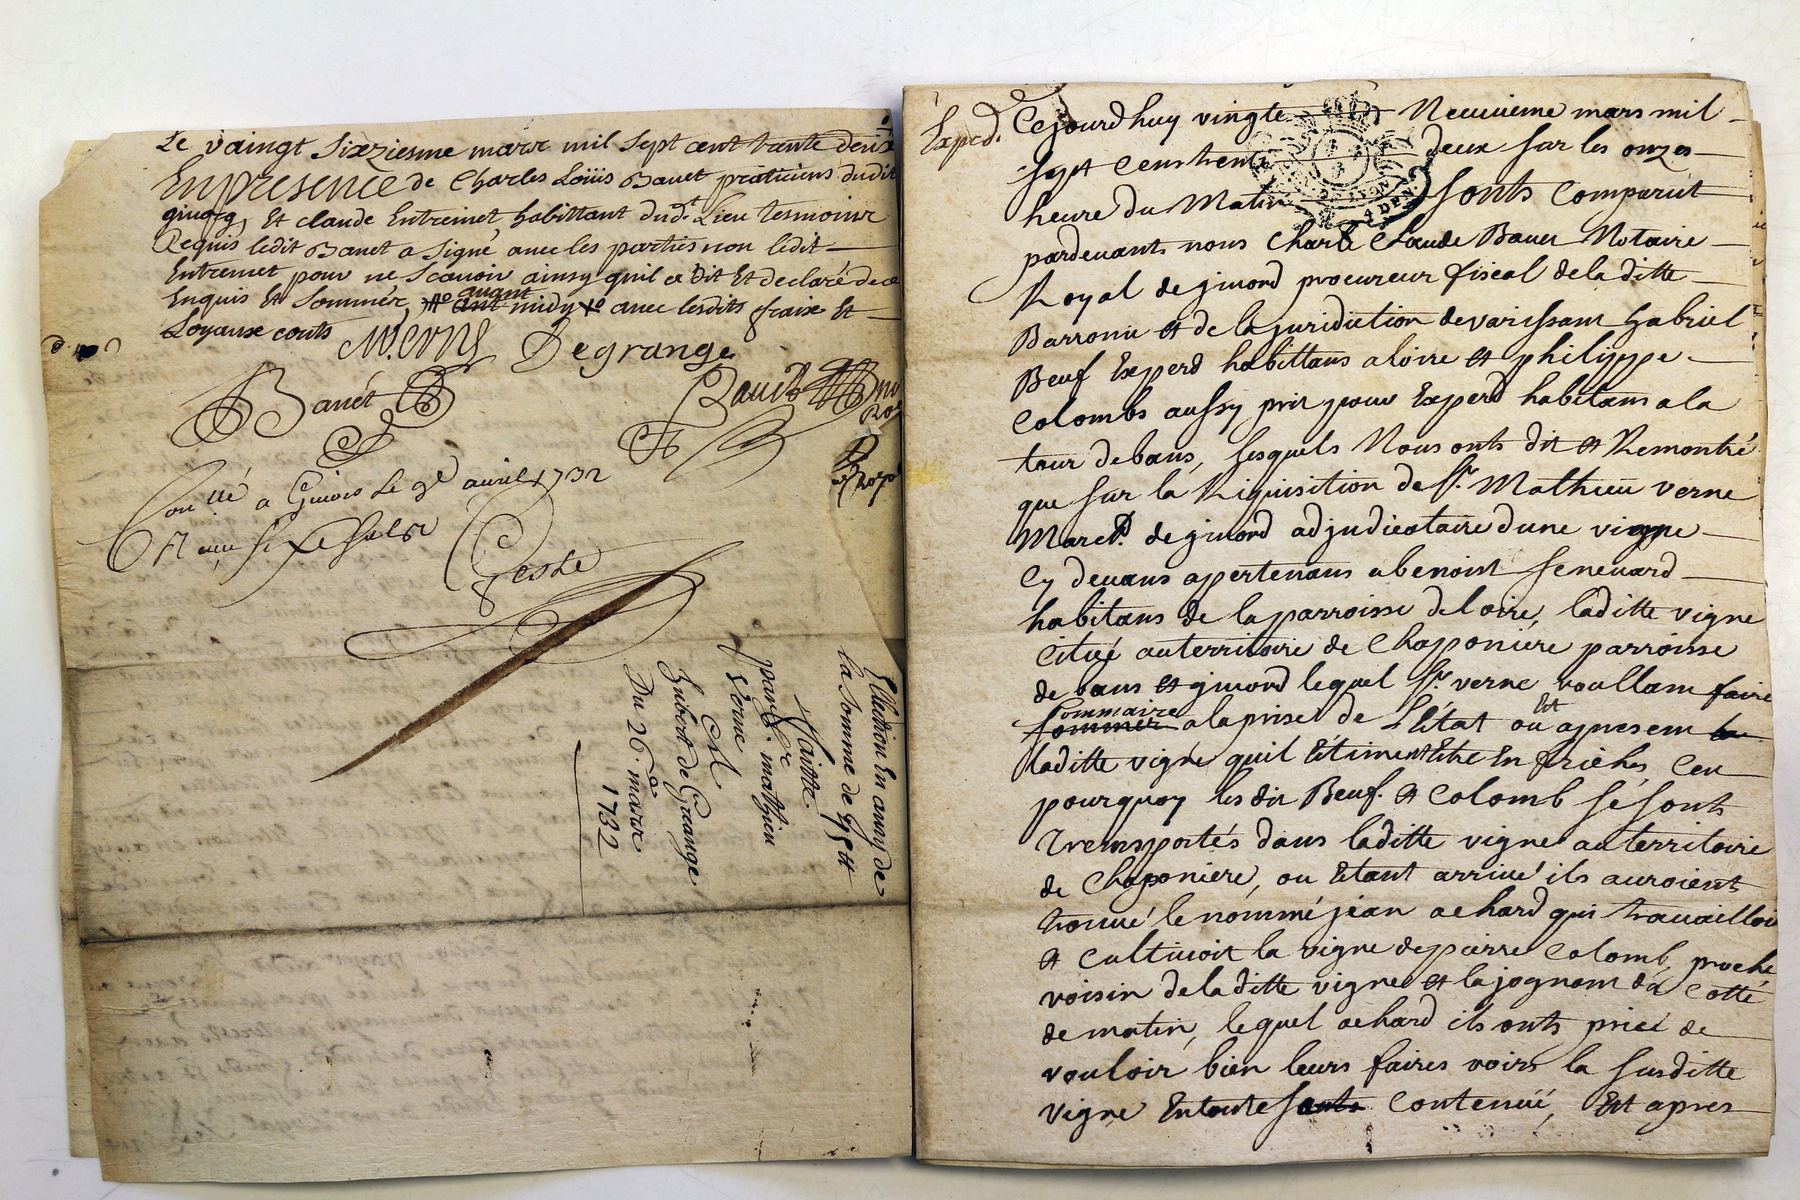 Le vaingt sixziesme marx mil sept cent trante deux
En presence de Charles Loüis Banet praticiens dudit
givorg, Et claude Entremet habittant dud.t Lieu tesmoins
Requis ledit Banet a signé avec les parties non ledit
Entremet pour ne scavoir ainsy quil a dit Et declaré de ce
Enquis Et sommér, avant midy avec lesdits fraix Et
Loyaux couts
Degrange
Banét
a Givors le 9e avril 1732
Du 26.e marx
1732
Hubert de Grange
Et
par sr. mathieu
Verne
faitte
la somme de
Expéd.
Cejourdhuy vingte Neuvieme mars mil
sept cens trente deux sur les onzes
heure du Matin sonts comparut
pardevants nous Charle Claude Baver Notaire
Royal de givord procureur fiscal de la ditte
Barronie et de la juridiction de varissant Gabriel
Beuf Experd habittans a loire et philippe
Colombs aussy pris pour Experd habitans a la
tour debans, lesquels Nous onts dit et Remontré
que sur la Riquisition de sr. Mathieu verne
March. de givord adjudicataire dune vigne
Cy devans apertenans a benoist senevard
habitans de la parroisse de loire, laditte vigne
Citué au territoire de Chaponiere parroisse
de bans et givord lequel sr. verne voullam faire
sommaire a la prise de Létat ou est apresem
laditte vigne quil Etiment Etre En friches Cen
pourquoy les dit Beuf. et Colomb sé sont
trensportés dans laditte vigne au territoire
de Chaponiere, ou Etant arrivé ils auroient
trouvé le nommé jéan achard qui travailloi
et cultivoit la vigne de pierre Colomb, proche
voisin de laditte vigne et la jognam du Cotté
de matin, lequel achard ils onts prieé de
vouloir bien leurs faires voirs la susditte
vigne En toute sa Contenué, Et apres